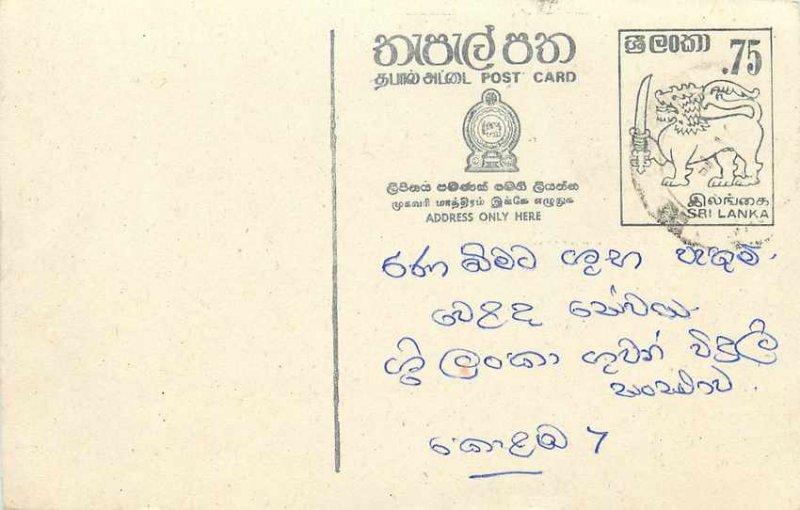 තැපැල් පත
தபால் அட்டை POST CARD
ලිපිනය පමණක් මෙහි ලියන්න
முகவரி மாத்திரம் இங்கே எழுதுக
ADDRESS ONLY HERE
ශ්‍රී ලංකා .75
இலங்கை
SRI LANKA
රණ බිමට ශුභ පැතුම්.
වෙළඳ සේවය
ශ්‍රී ලංකා ගුවන් විදුලි
සංස්ථාව.
කොළඹ 7